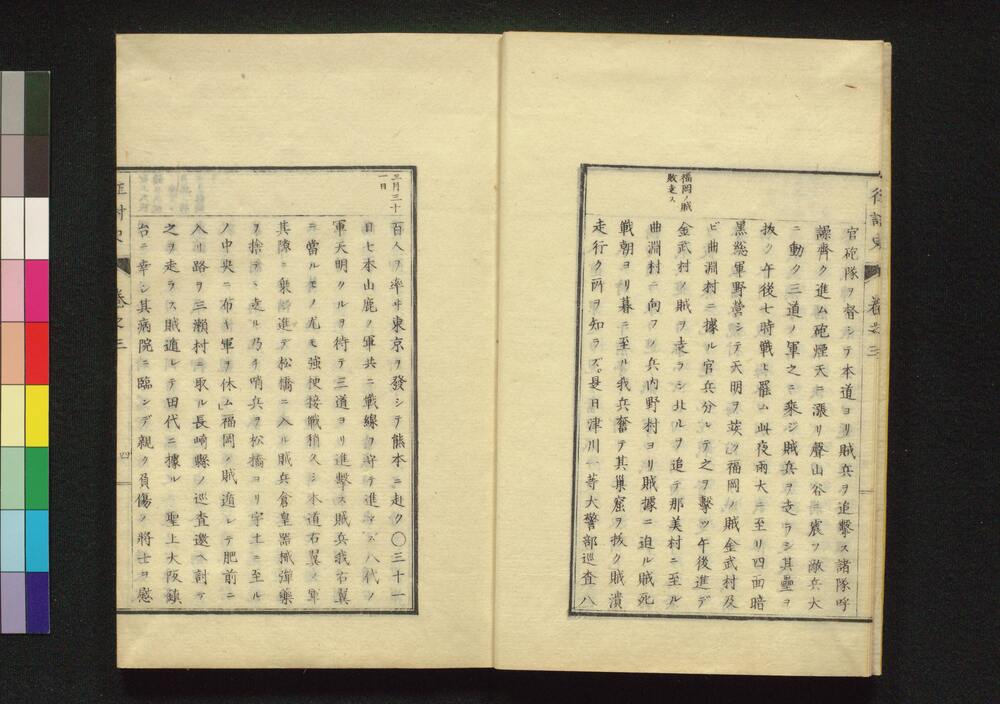 官砲隊ヲ督シテ本道ヨリ賊兵ヲ追撃ス諸隊呼
譟齊ク進ム砲煙天ニ漲リ聲山谷ニ震フ敵兵大
ニ動ク三道ノ軍之ニ乗ジ賊兵ヲ走ラシ其壘ヲ
抜ク午後七時戦ヒ罷ム此夜雨大ニ至リ四面暗
黒総軍野営シテ天明ヲ竢ツ福岡ノ賊金武村及
ビ曲淵村ニ據ル官兵分レテ之ヲ撃ツ午後進デ
福岡ノ賊
敗走ス
金武村ノ賊ヲ走ラシ北ルヲ追テ那美村ニ至ル
曲淵村ニ向フノ兵内野村ヨリ賊據ニ迫ル賊死
戦朝ヨリ暮ニ至ル我兵奮テ其巣窟ヲ抜ク賊潰
走行ク所ヲ知ラズ。是日津川一等大警部巡査八
巻之三
三月三十
一日
百人ヲ率ヰ東京ヲ發シテ熊本ニ赴ク〇三十一
日七本山鹿ノ軍共ニ戦線ヲ守テ進マズ八代ノ
軍天明クルヲ待テ三道ヨリ進撃ス賊兵我右翼
ニ當ルモノ尤モ強梗接戦稍久シ本道右翼ノ軍
其隙ニ乗ジ進デ松橋ニ入ル賊兵倉皇器械弾藥
ヲ捨テヽ走ル乃チ哨兵ヲ松橋ヨリ宇土ニ至ル
ノ中央ニ布キ軍ヲ休ム」福岡ノ賊遁レテ肥前ニ
入リ路ヲ三瀬村ニ取ル長崎縣ノ巡査邀ヘ討テ
之ヲ走ラス賊遁レテ田代ニ據ル 聖上大阪鎮
台ニ幸シ其病院ニ臨ンデ親ク負傷ノ将士ヲ慰
巻之三
四